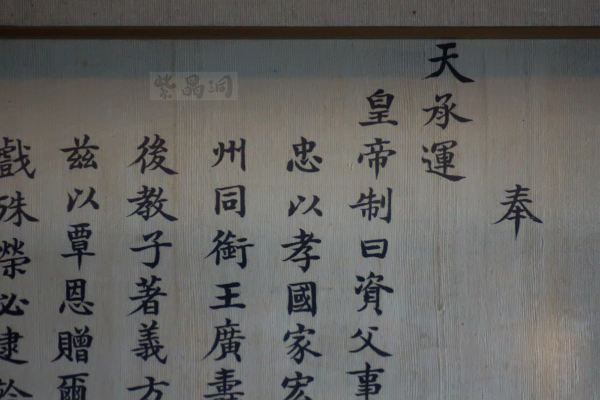 奉
天承運
皇帝制曰資父事
忠以孝國家宏
州同銜王廣壽
後教子著義方
茲以覃恩贈爾
戲殊榮必逮於
紫晶洞